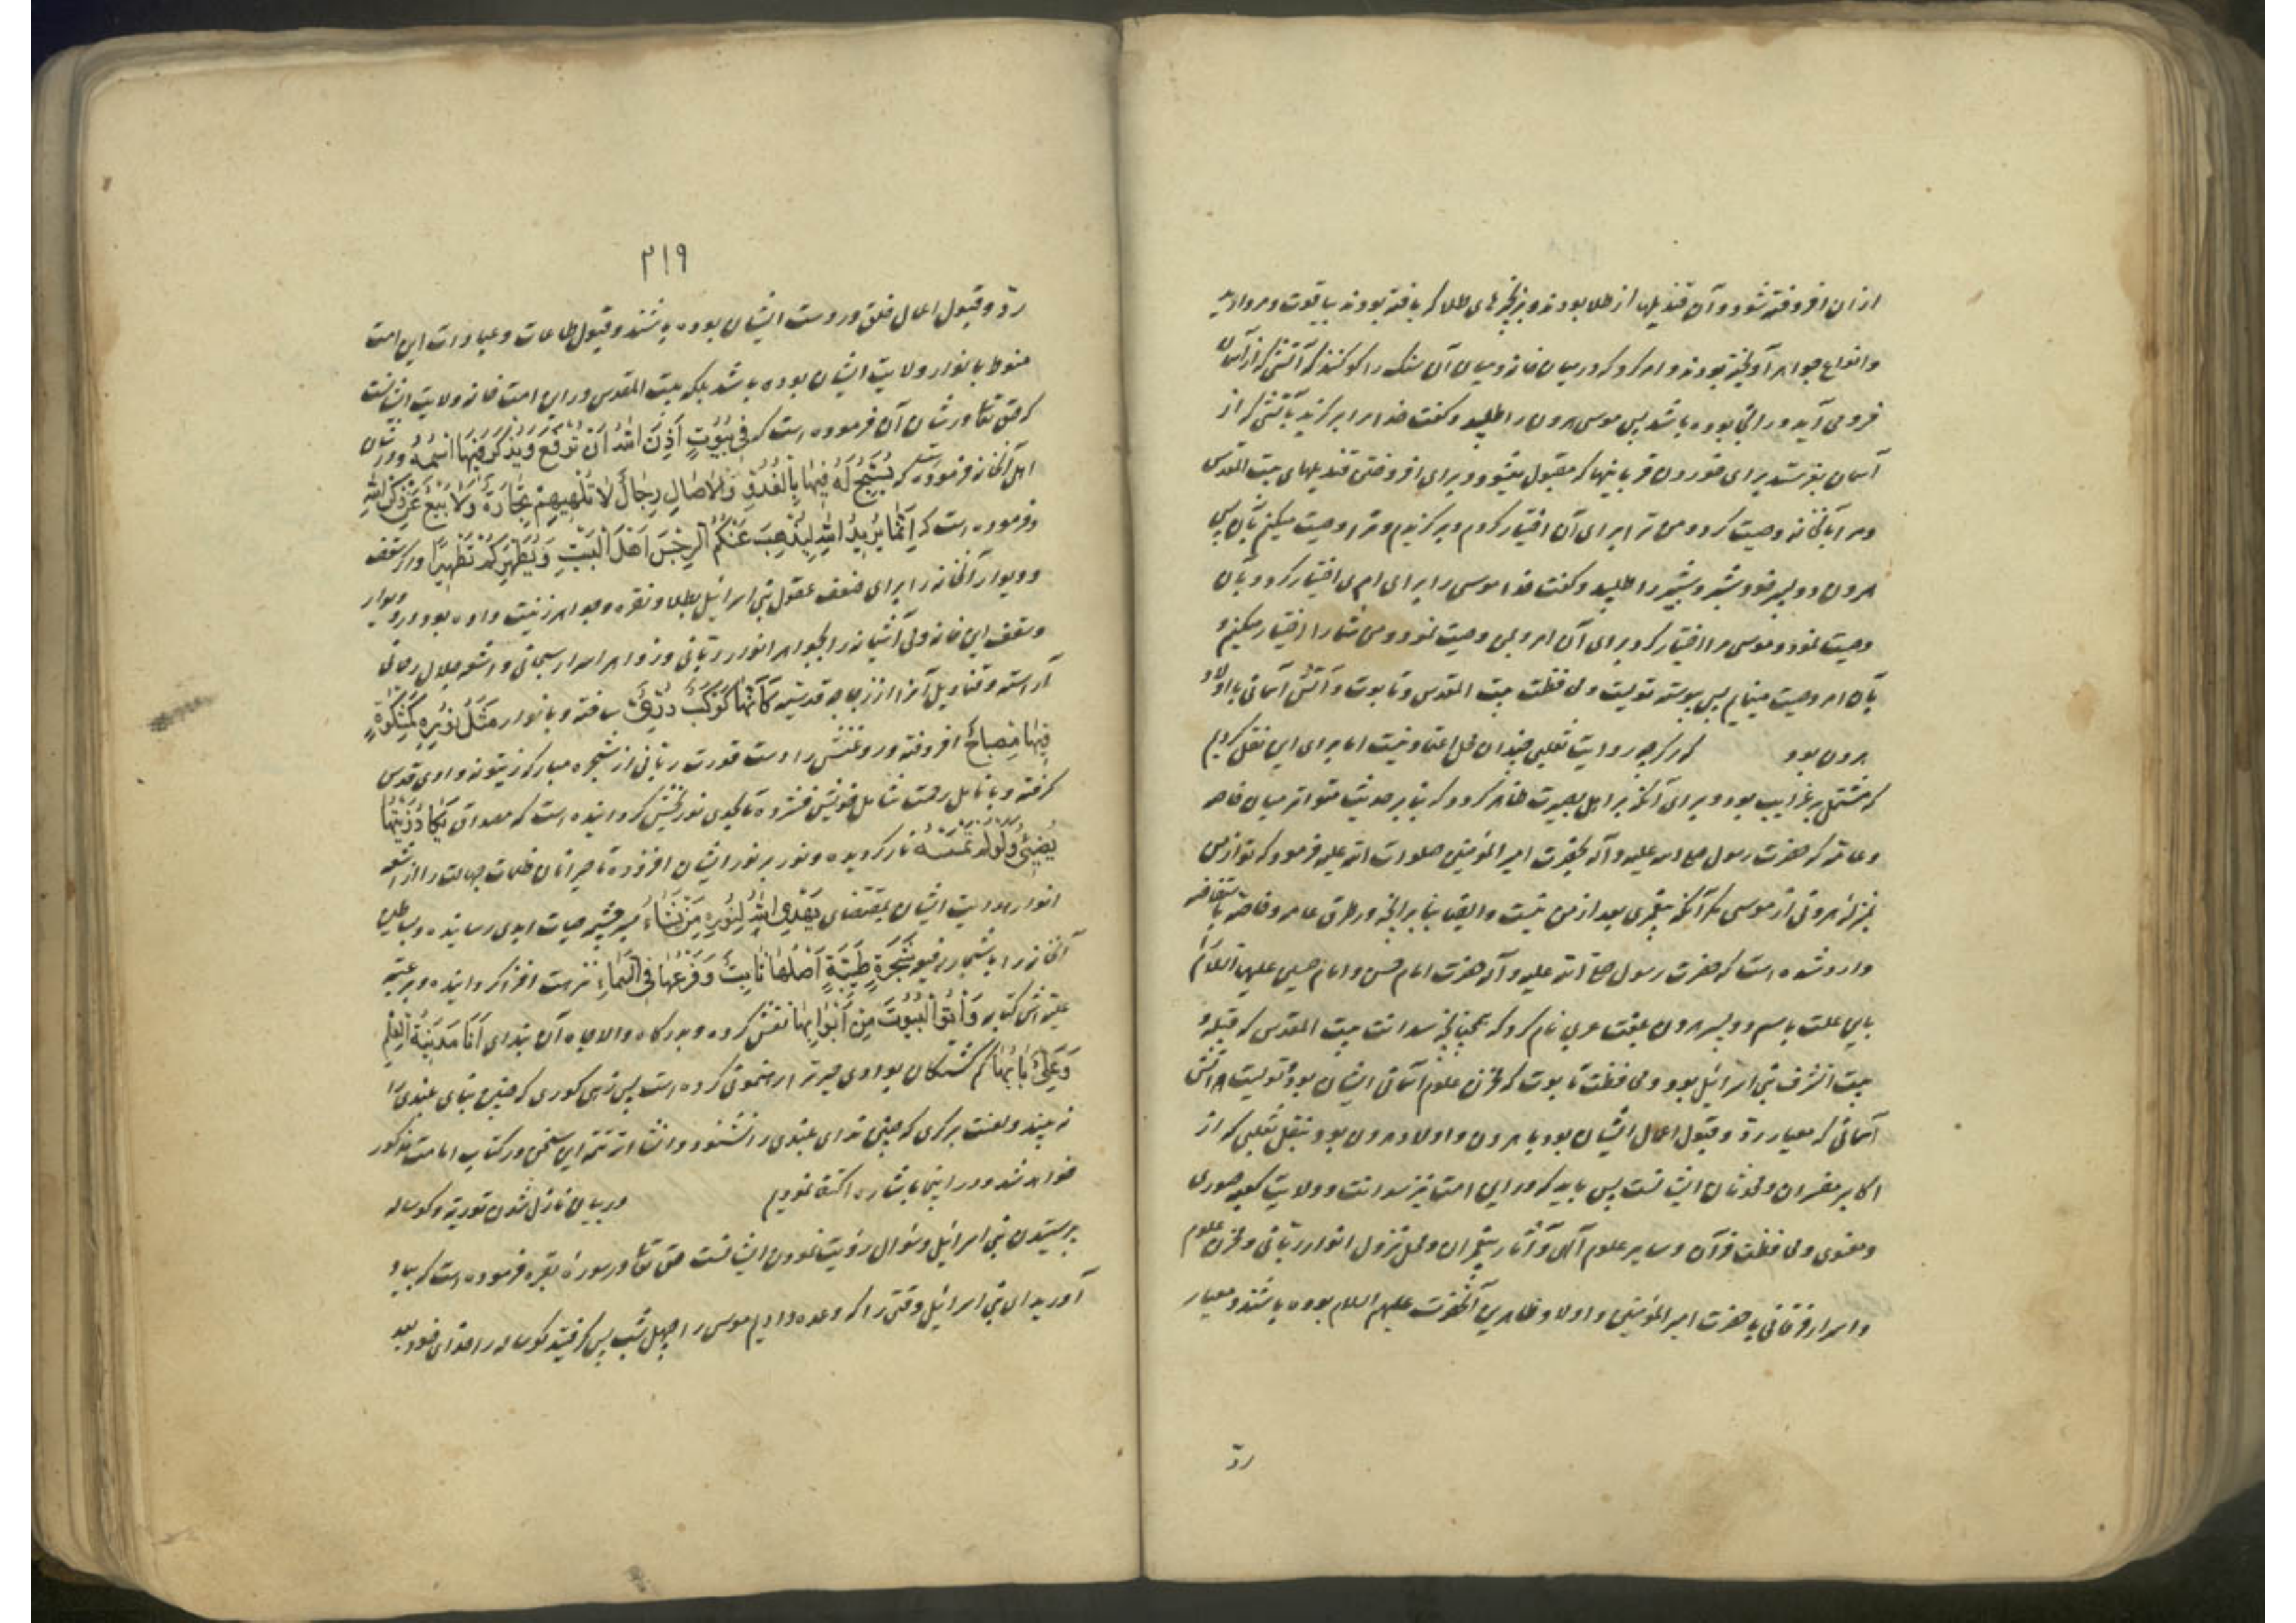 ازان افروخته شود و آن قندیلها از طلا بودند و بزنجیرهای طلا که بافته بودند بیاقوت و مروارید
و انواع جواهر آویخته بودند و امر کرد که در میان خانه و میان آن سنک را کو کنند که آتشی که از آسمان
فرو می آید در انجا بوده باشد پس موسی هرون را طلبید و کفت خدا مرا برکزید بآتشی که از
آسمان بفرستد برای خوردن قربانیها که مقبول میشود و برای افروختن قندیلهای بیت المقدس
و مرا بآنخانه وصیت کرد و من ترا برای آن اختیار کردم و برکزیدم و ترا وصیت میکنم بآن پس
هرون دو پسر خود شبر و شبیر را طلبید و کفت خدا موسی را برای امری اختیار کرد و بآن
وصیت نمود و موسی مرا اختیار کرد برای آن امر و بمن وصیت نمود و من شما را اختیار میکنم و
بآن امر وصیت مینمایم پس پیوسته تولیت و محافظت بیت المقدس و تابوت و آتش آسمانی با اولاد
هرون بود کرچه روایت ثعلبی چندان محل اعتماد نیست اما برای این نقل کردیم
که مشتمل بر غرایب بود و برای آنکه بر اهل بصیرت ظاهر کردد که بنا بر حدیث متواتر میان خاصه
و عامه که حضرت رسول صلی الله علیه و آله بحضرت امیر المؤمنین صلوات الله علیه فرمود که تو از من
بمنزلهٔ هرونی از موسی مکر آنکه پیغمبری بعد از من نیست و ایضا بنا بر انچه در طرق عامه و خاصه باستفاضه
وارد شده است که حضرت رسول صلی الله علیه و آله حضرت امام حسن و امام حسین علیهما السلام
باین علت باسم دو پسر هرون بلغت عربی نام کرد که همچنانچه سدانت بیت المقدس که قبله و
بیت الشرف بنی اسرائیل بود و محافظت تابوت که مخزن علوم آسمانی ایشان بود و تولیت آتش
آسمانی که معیار رد و قبول اعمال ایشان بود با هرون و اولاد هرون بود بنقل ثعلبی که از
اکابر مفسران و محدثان ایشانست پس باید که در این امت نیز سدانت و ولایت کعبهٔ صوری
و معنوی و محافظت قرآن و سایر علوم آلهی و آثار پیغمبران و محل نزول انوار ربانی و مخزن علوم
و اسرار فرقانی با حضرت امیر المؤمنین و اولاد طاهرین آنحضرت علیهم السلام بوده باشند و معیار
ردّ
۲۱۹
ردّ و قبول اعمال خلق در دست ایشان بوده باشند و قبول طاعات و عبادات این امت
منوط بانوار ولایت ایشان بوده باشد بلکه بیت المقدس در این امت خانه ولایت ایشانست
که حق تعالی در شان آن فرموده است که فِی بُیُوتٍ أَذِنَ اللهُ أَنْ تُرْفَعَ وَیُذْکَرَ فِیهَا اسْمُهُ و در شان
اهل آنخانه فرموده است که یُسَبِّحُ لَهُ فِیهَا بِالْغُدُوِّ وَالْآصَالِ رِجَالٌ لَا تُلْهِیهِمْ تِجَارَةٌ وَلَا بَیْعٌ عَنْ ذِکْرِ اللهِ
و فرموده است که إِنَّمَا یُرِیدُ اللهُ لِیُذْهِبَ عَنْکُمُ الرِّجْسَ أَهْلَ الْبَیْتِ وَیُطَهِّرَکُمْ تَطْهِیرًا و اکر سقف
و دیوار آنخانه را برای ضعف عقول بنی اسرائیل بطلا و نقره و جواهر زینت داده بود در و دیوار
و سقف این خانهٔ ولی آشیانه را بجواهر انوار ربانی و زواهر اسرار سبحانی و اشعهٔ جلال رحمانی
آراسته و قنادیل آنرا از زجاجه قدسیه کَأَنَّهَا کَوْکَبٌ دُرِّیٌّ ساخته و بانوار مَثَلُ نُورِهِ کَمِشْکَوةٍ
فِیهَا مِصْبَاحٌ افروخته و روغنش را دست قدرت ربانی از شجره مبارکه زیتونه وادی قدس
کرفته و بانامل رحمت شامل خویش فشرده تا بحدی نوربخش کردانیده است که مصداق یَکَادُ زَیْتُهَا
یُضِیءُ وَلَوْ لَمْ تَمْسَسْهُ نَارٌ کردیده و نور بر نور ایشان افزوده تا حیرانان ظلمات جهالت را از اشعه
انوار هدایت ایشان بمقتضای یَهْدِی اللهُ لِنُورِهِ مَنْ یَشَاءُ بسرچشمه حیات ابدی رسانیده و بساطین
آنخانه را باشجار رفیع شَجَرَةٍ طَیِّبَةٍ أَصْلُهَا ثَابِتٌ وَفَرْعُهَا فِی السَّمَاءِ نزهت افزا کردانیده و بر عتبه
علیه اش کتابه وَأْتُوا الْبُیُوتَ مِنْ أَبْوَابِهَا نقش کرده و بدرکاه والا جاه آن بندای أَنَا مَدِینَةُ الْعِلْمِ
وَعَلِیٌّ بَابُهَا کم کشتکان بوادی حیرت را رهنمونی کرده است پس زهی کوری که چنین بنای بلندی را
نه بیند و لعنت بر کری که چنین ندای بلندی را نشنود و انشاء الله تتمه این سخن در کتاب امامت مذکور
خواهد شد و در اینجا باشاره اکتفا نمودیم در بیان نازل شدن توریة و کوساله
پرستیدن بنی اسرائیل و سؤال رؤیت نمودن ایشانست حق تعالی در سورهٔ بقره فرموده است که بیاد
آورید ای بنی اسرائیل وقتی را که وعده دادیم موسی را چهل شب پس کرفتید کوساله را خدای خود بعد